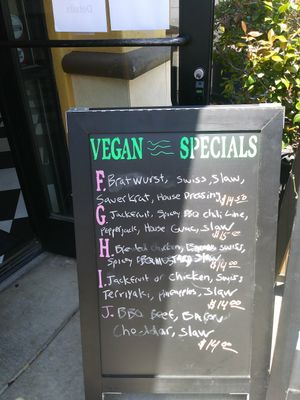 Details
VEGAN SPECIALS
F. Bratwurst, swiss, slaw,
Sauerkrat, House Dressing $14.50
G. Jackfruit, Spicy BBQ Chili Lime,
Pepperjack, House Guac, Slaw $15.00
H. Breaded chicken, swiss,
Spicy Slaw $14.00
I. Jackfruit or Chicken, Swiss
Terriyaki, pineapples, Slaw $14.00
J. BBQ Beef, Bacon
Cheddar, slaw
$14.00